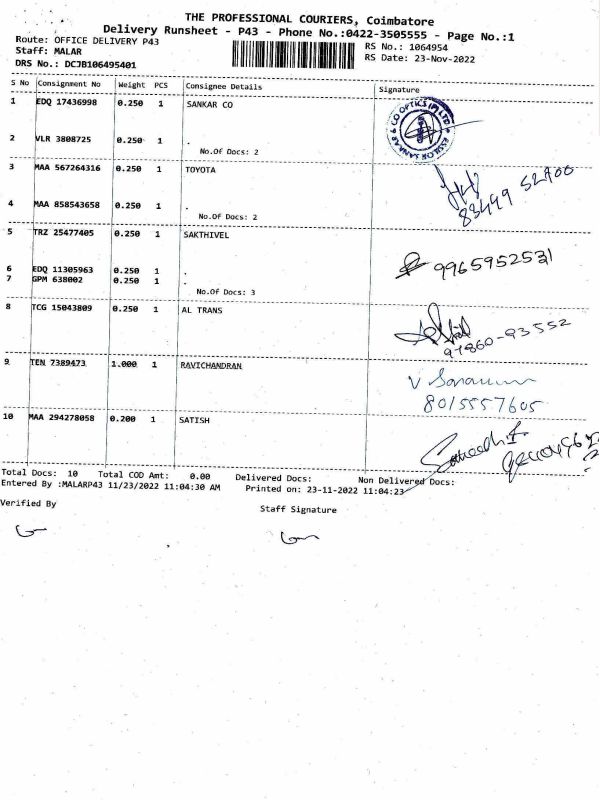 THE PROFESSIONAL COURIERS, Coimbatore
Delivery Runsheet - P43 - Phone No.:0422-3505555 - Page No.:1
Route: OFFICE DELIVERY P43
Staff: MALAR
DRS No.: DCJB106495401
RS No.: 1064954
RS Date: 23-Nov-2022
S No Consignment No Weight PCS Consignee Details Signature
1 EDQ 17436998 0.250 1 SANKAR CO
2 VLR 3808725 0.250 1 .
No.Of Docs: 2
3 MAA 567264316 0.250 1 TOYOTA
4 MAA 858543658 0.250 1 .
No.Of Docs: 2
5 TRZ 25477405 0.250 1 SAKTHIVEL
9965952531
6 EDQ 11305963 0.250 1 .
7 GPM 638002 0.250 1 .
No.Of Docs: 3
8 TCG 15043809 0.250 1 AL TRANS
97860-93552
9 TEN 7389473 1.000 1 RAVICHANDRAN
8015557605
10 MAA 294278058 0.200 1 SATISH
Total Docs: 10 Total COD Amt: 0.00 Delivered Docs: Non Delivered Docs:
Entered By :MALARP43 11/23/2022 11:04:30 AM Printed on: 23-11-2022 11:04:23
Verified By
Staff Signature